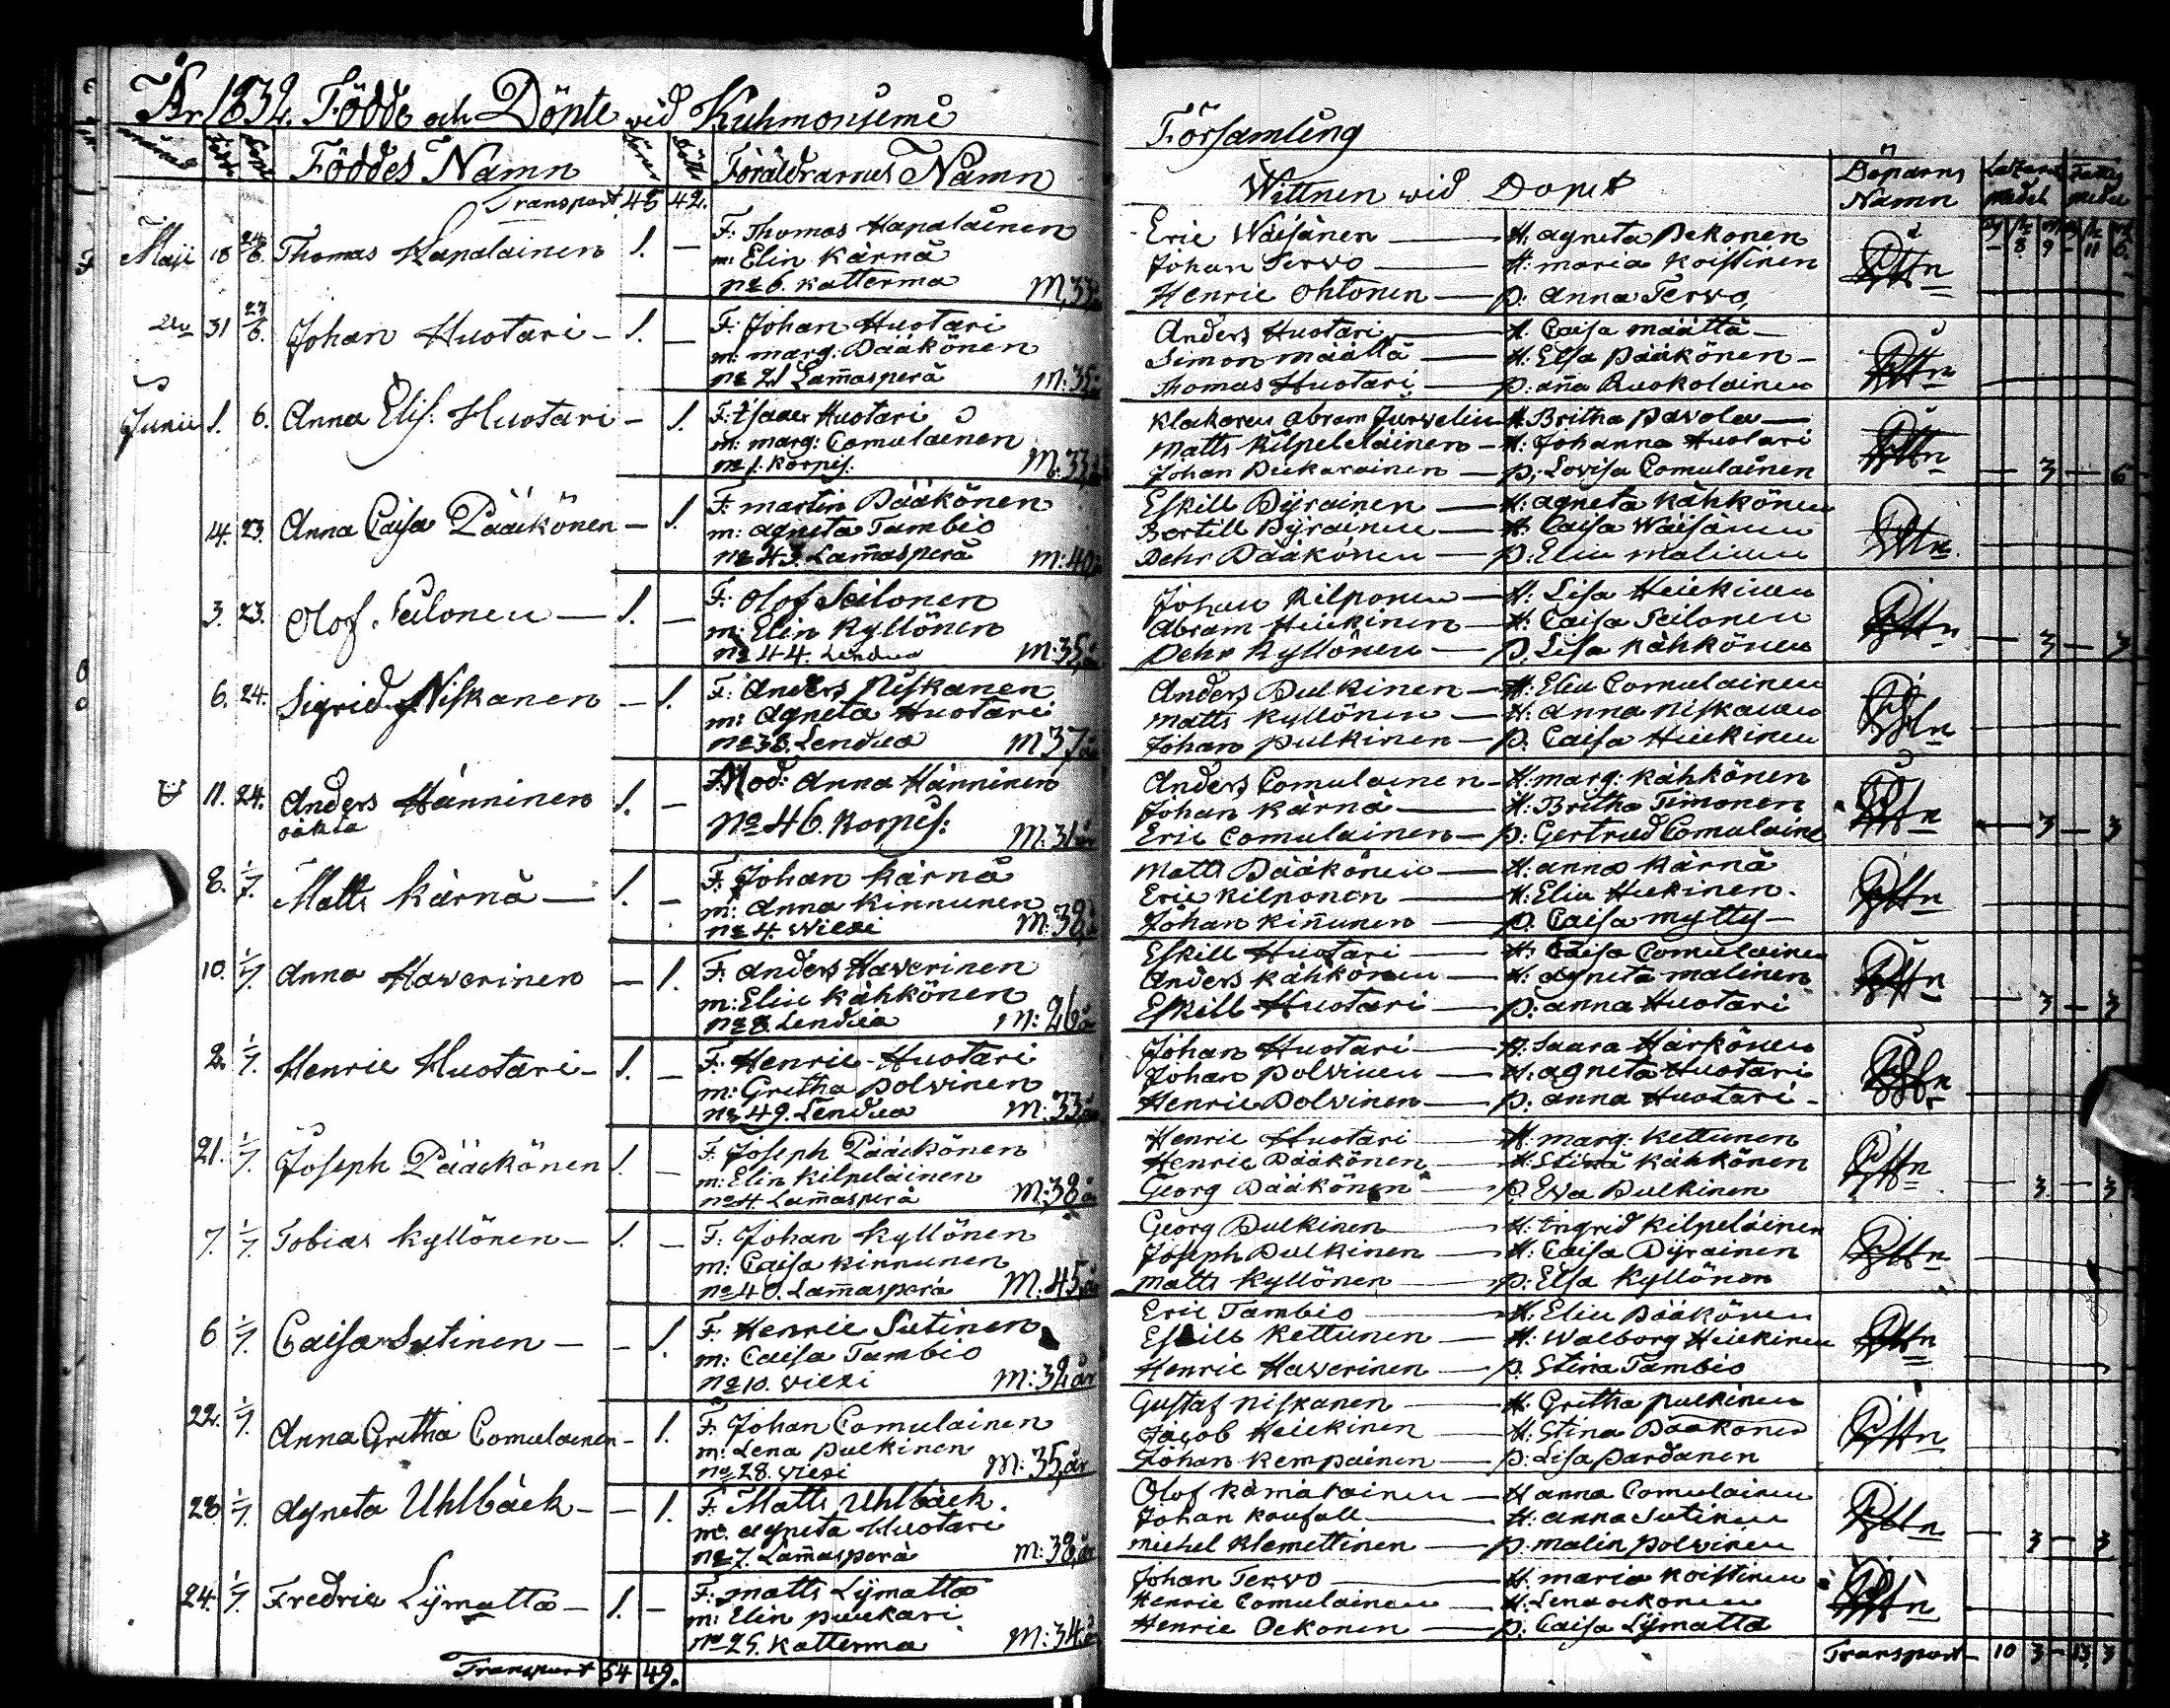 År 1832. Födde och Döpte wid Kuhmoniemi
månad Födde Döpte Föddes Namn Söner Döttr Föräldrarnes Namn
Transport 45 42.
Maji 18 24/6. Thomas Hapalainen 1. — F: Thomas Hapalainen
m: Elin Kärnä
No 6. Katterma M. 33
do 31 24/6. Johan Huotari - 1. — F: Johan Huotari
m: marg: Pääkönen
No 21 Lam̄asperä M: 35
Junii 1. 6. Anna Elis: Huotari - 1. F: Isaac Huotari
m: marg: Comulainen
No 1. Korpis. M: 33
14. 23. Anna Caisa Pääkönen — 1. F: martin Pääkönen
m: agneta Tambio
No 43. Lam̄asperä m: 40
3. 23. Olof Seilonen — 1. — F: Olof Seilonen
m: Elin Kyllönen
No 44. Lendua M: 35, år
6. 24. Sigrid Niskanen — 1. F: Anders Niskanen
m: Agneta Huotari
No 38. Lendua M 37 år
11. 24. Anders Hänninen 1. — Mod: Anna Hänninen
oäkta
No 46. Korpis: M: 31 år
8. 1/7. Matts Kärnä — 1. — F: Johan Kärnä
m: Anna Kinnunen
No 4. Wiexi M: 38,
10. 1/7. Anna Haverinen — 1. F: Anders Haverinen
m: Elin Kähkönen
No 8. Lendua M: 26 å
2. 1/7. Henric Huotari - 1. — F: Henric Huotari
m: Gretha Polvinen
No 49. Lendua M: 33, år
21. 1/7. Joseph Pääkönen 1. — F: Joseph Pääkönen
m: Elin Kilpeläinen
No 4. Lam̄asperä M: 38 å
7. 1/7. Tobias Kyllönen — 1. — F: Johan Kyllönen
m: Caisa Kinnunen
No 40. Lam̄asperä M: 45, år
6 1/7. Caisa Sutinen — - 1. F: Henric Sutinen
m: Caisa Tambio
No 10. Wiexi M: 32 år
22. 1/7. Anna Gretha Comulainen - 1. F: Johan Comulainen
m: Lena Pulkinen
No 28. Wiexi M: 35, år
23. 1/7. Agneta Uhlbäck - — 1. F: Matts Uhlbäck.
m: agneta Huotari
No 7. Lam̄asperä m: 38, år
24. 1/7. Fredric Lÿmatta — 1. — F: matts Lÿmatta
m: Elin
No 25. Katterma M: 34. å
Transport 54 49.
Församling
Wittnen wid Dopet Döparns Namn
Eric Wäisänen — H: agneta Pekonen
Johan Tervo — H: maria Koistinen
Henric Ohtonen — p: Anna Tervo,
Anders Huotari — H. Caisa määttä —
Simon määttä — H: Elsa Pääkönen —
Thomas Huotari — p: an̄a Ruokolainen
Klockaren Abram — H. Britha Pavola —
Matts Kilpeläinen — H: Johanna Huotari
Johan — p. Lovisa Comulainen — 3 — 6
Eskill Pÿrainen — H: agneta Kähkönen
Bertill Pÿrainen — H: Caisa Wäisänen
Pehr Pääkönen — p: Elin malinen
Johan Kilponen — H: Lisa Heickinen
Abram Heickinen — H: Caisa Seilonen
Pehr Kyllönen — p. Lisa Kähkönen — 3 — 3
Anders Pulkinen — H: Elin Comulainen
matts Kyllönen — H: Anna Niskanen
Johan Pulkinen — p. Caisa Heickinen
Anders Comulainen — H: marg: Kähkönen
Johan Kärnä — H: Britha Timonen
Eric Comulainen — p: Gertrud Comulaine — 3 — 3
Matts Pääkönen — H: anna Kärnä
Eric Kilponen — H: Elin Heickinen.
Johan Kin̄unen — p. Caisa Mytty —
Eskill Huotari — H: Caisa Comulainen
Anders Kähkönen — H: agneta malinen
Eskill Huotari — p: anna Huotari — 3 — 3
Johan Huotari — H: Saara Härkönen
Johan Polvinen — H: agneta Huotari
Henric Polvinen — p: anna Huotari -
Henric Huotari — H: marg: Kettunen
Henric Pääkönen — H: Stina Kähkönen
Georg Pääkönen — p. Eva Pulkinen — 3 — 3
Georg Pulkinen — H: Ingrid Kilpeläinen
Joseph Pulkinen — H: Caisa Pÿrainen
Matts Kyllönen — p: Elsa Kyllönen
Eric Tambio — H. Elin Pääkönen
Eskill Kettunen — H: Walborg Heickinen
Henric Haverinen — p. Stina Tambio
Gustaf Niskanen — H. Gretha Pulkinen
Jacob Heickinen — H: Stina Pääkönen
Johan Kempainen — p: Lisa Pardanen
Olof Kämäräinen — H anna Comulainen
Johan — H: anna Sutinen
Michel Klemettinen — p: malin Polvinen — 3 — 3
Johan Tervo — H. maria Koistinen
Henric Comulainen — H: Lena
Henric Pekonen — p: Caisa Lÿmatta
Transport — 10 3 — 13. 3